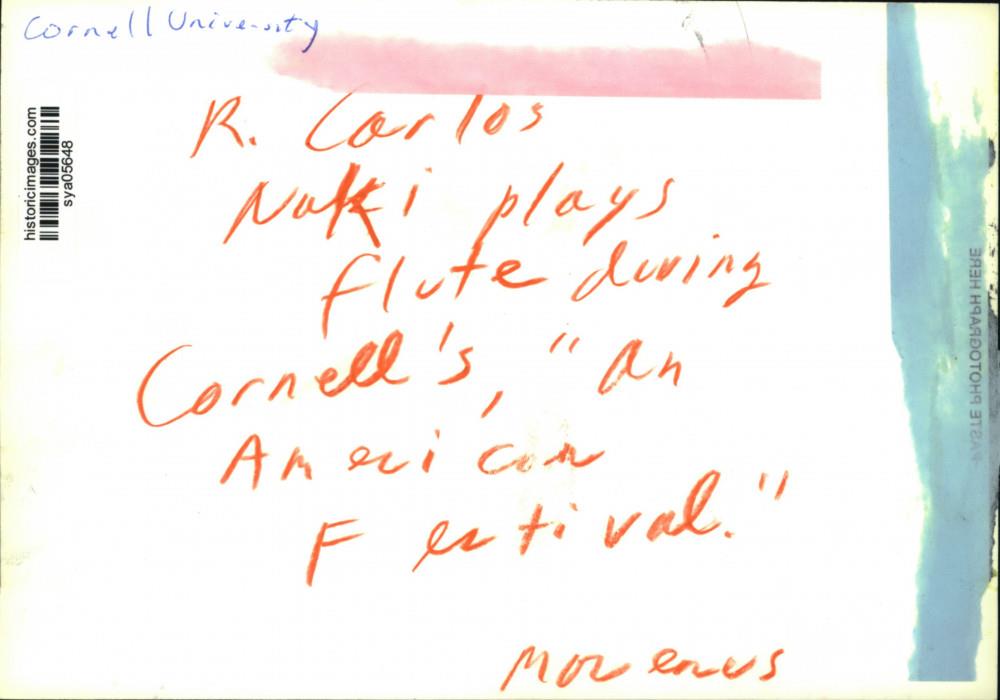 Cornell University
historicimages.com
sya05648
R. Carlos
Naki plays
flute during
Cornell's, "An
American
Festival."
PASTE PHOTOGRAPH HERE